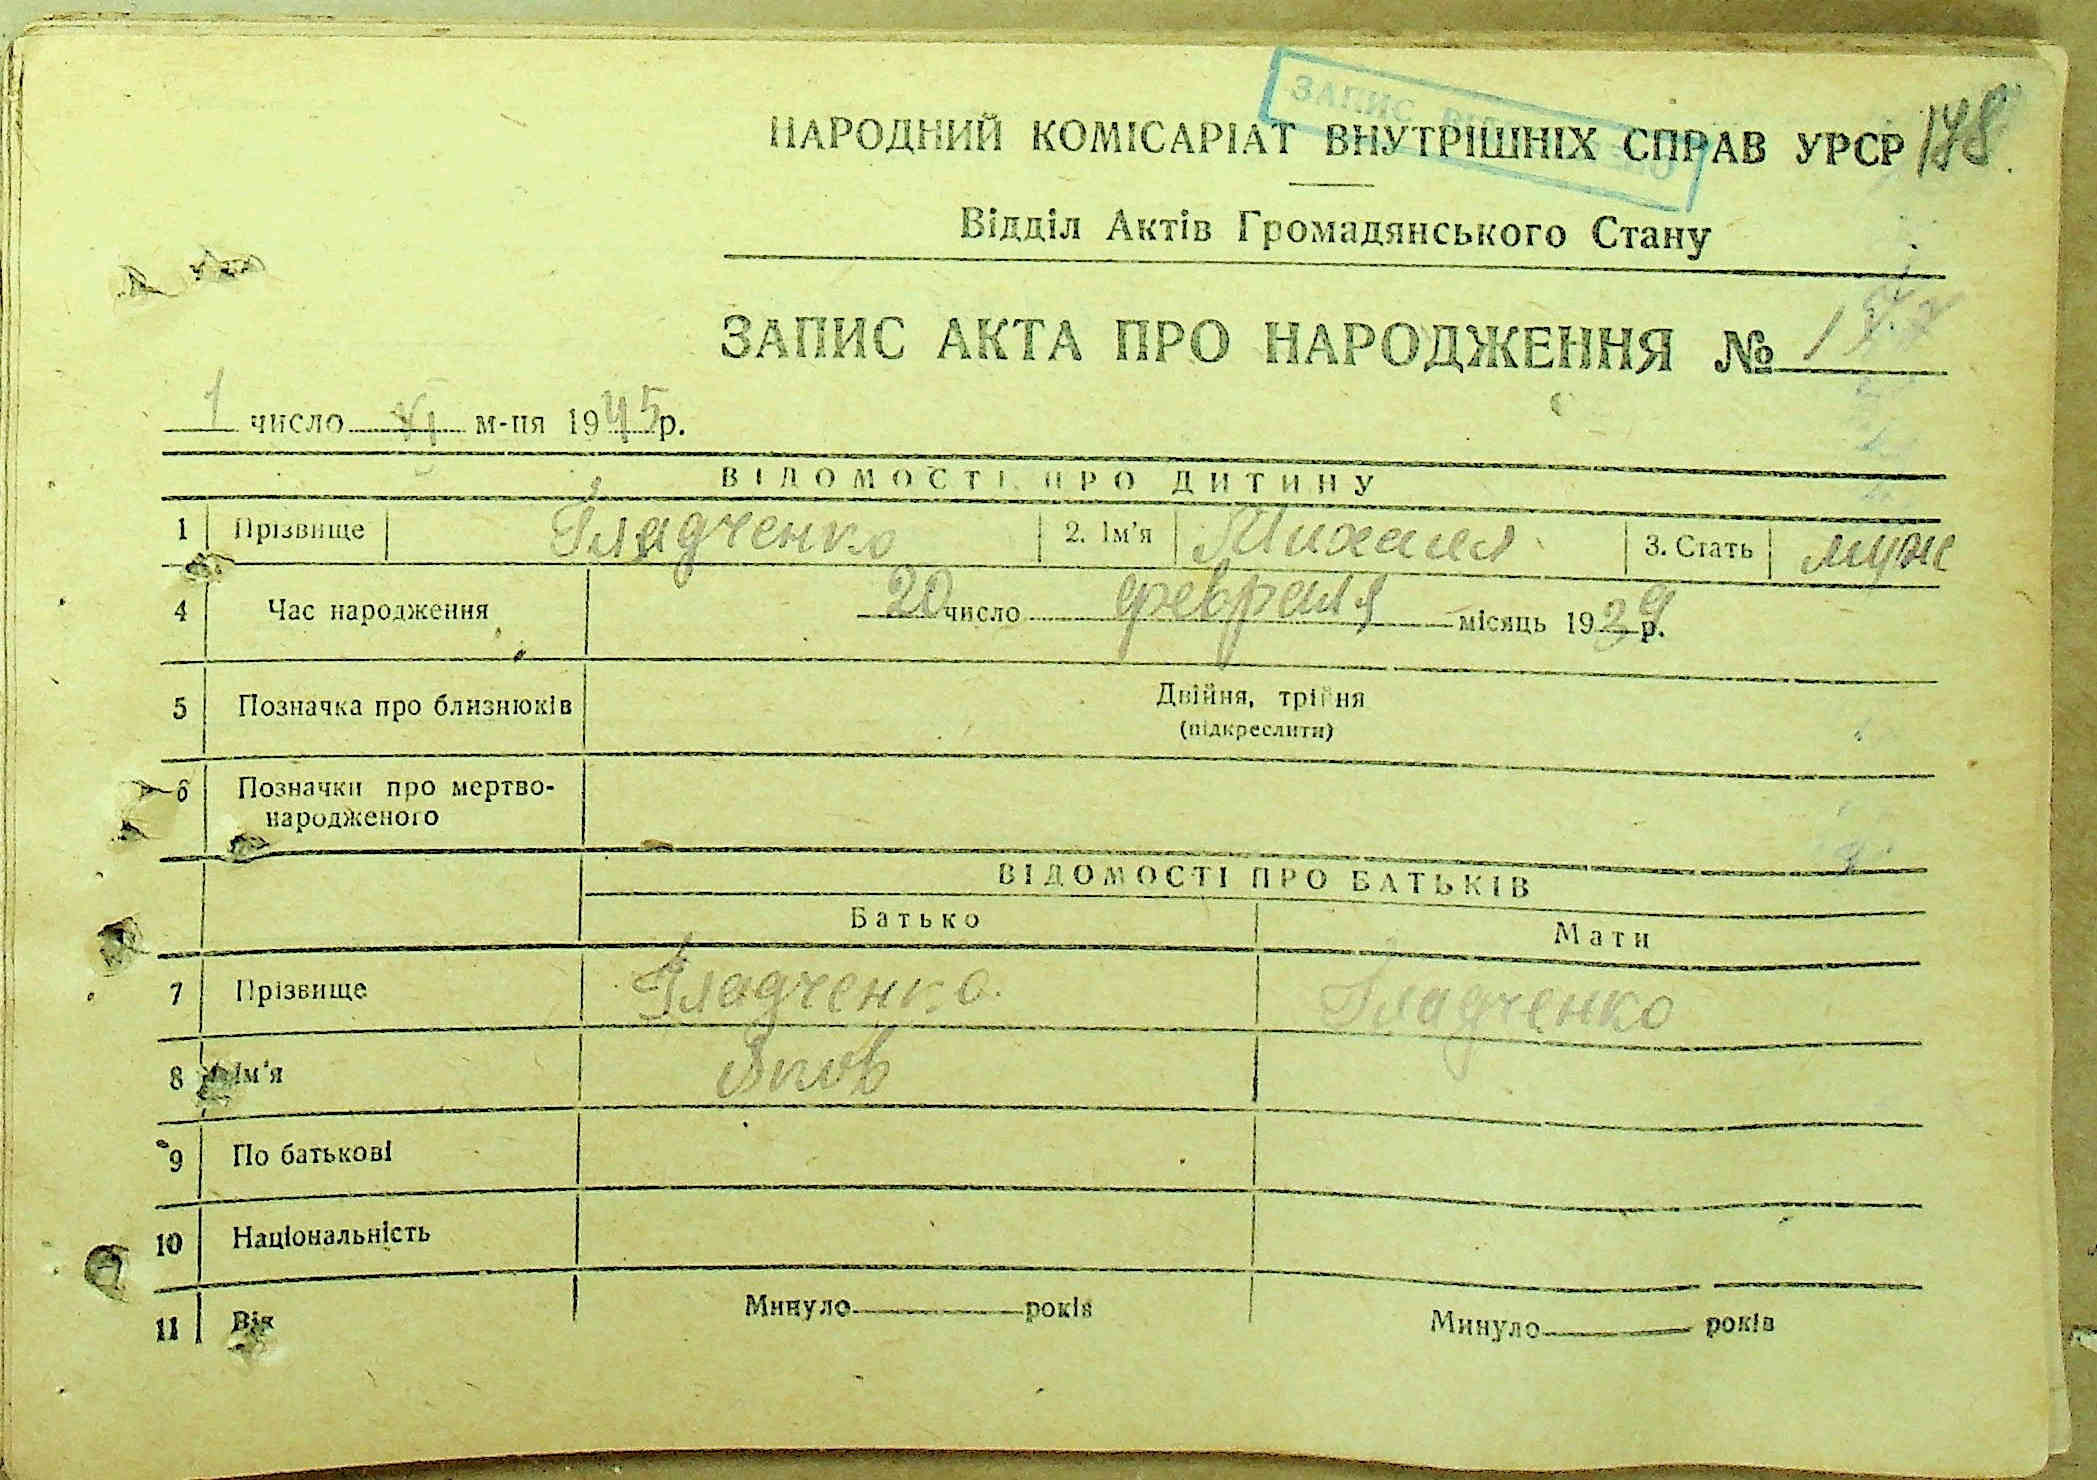 ЗАПИС
НАРОДНИЙ КОМІСАРІАТ ВНУТРІШНІХ СПРАВ УРСР 178
Відділ Актів Громадянського Стану
ЗАПИС АКТА ПРО НАРОДЖЕННЯ №
1 число VI м-ця 1945р.
ВІДОМОСТІ ПРО ДИТИНУ
1 Прізвище Гладченко 2. Ім'я Михаил 3. Стать муж
4 Час народження 20 число февраля місяць 1939 р.
5 Позначка про близнюків Двійня, трійня
(підкреслити)
6 Позначки про мертво-
народженого
ВІДОМОСТІ ПРО БАТЬКІВ
Батько Мати
7 Прізвище Гладченко. Гладченко
8 Ім'я Яков
9 По батькові
10 Національність
11 Вік Минуло років Минуло років